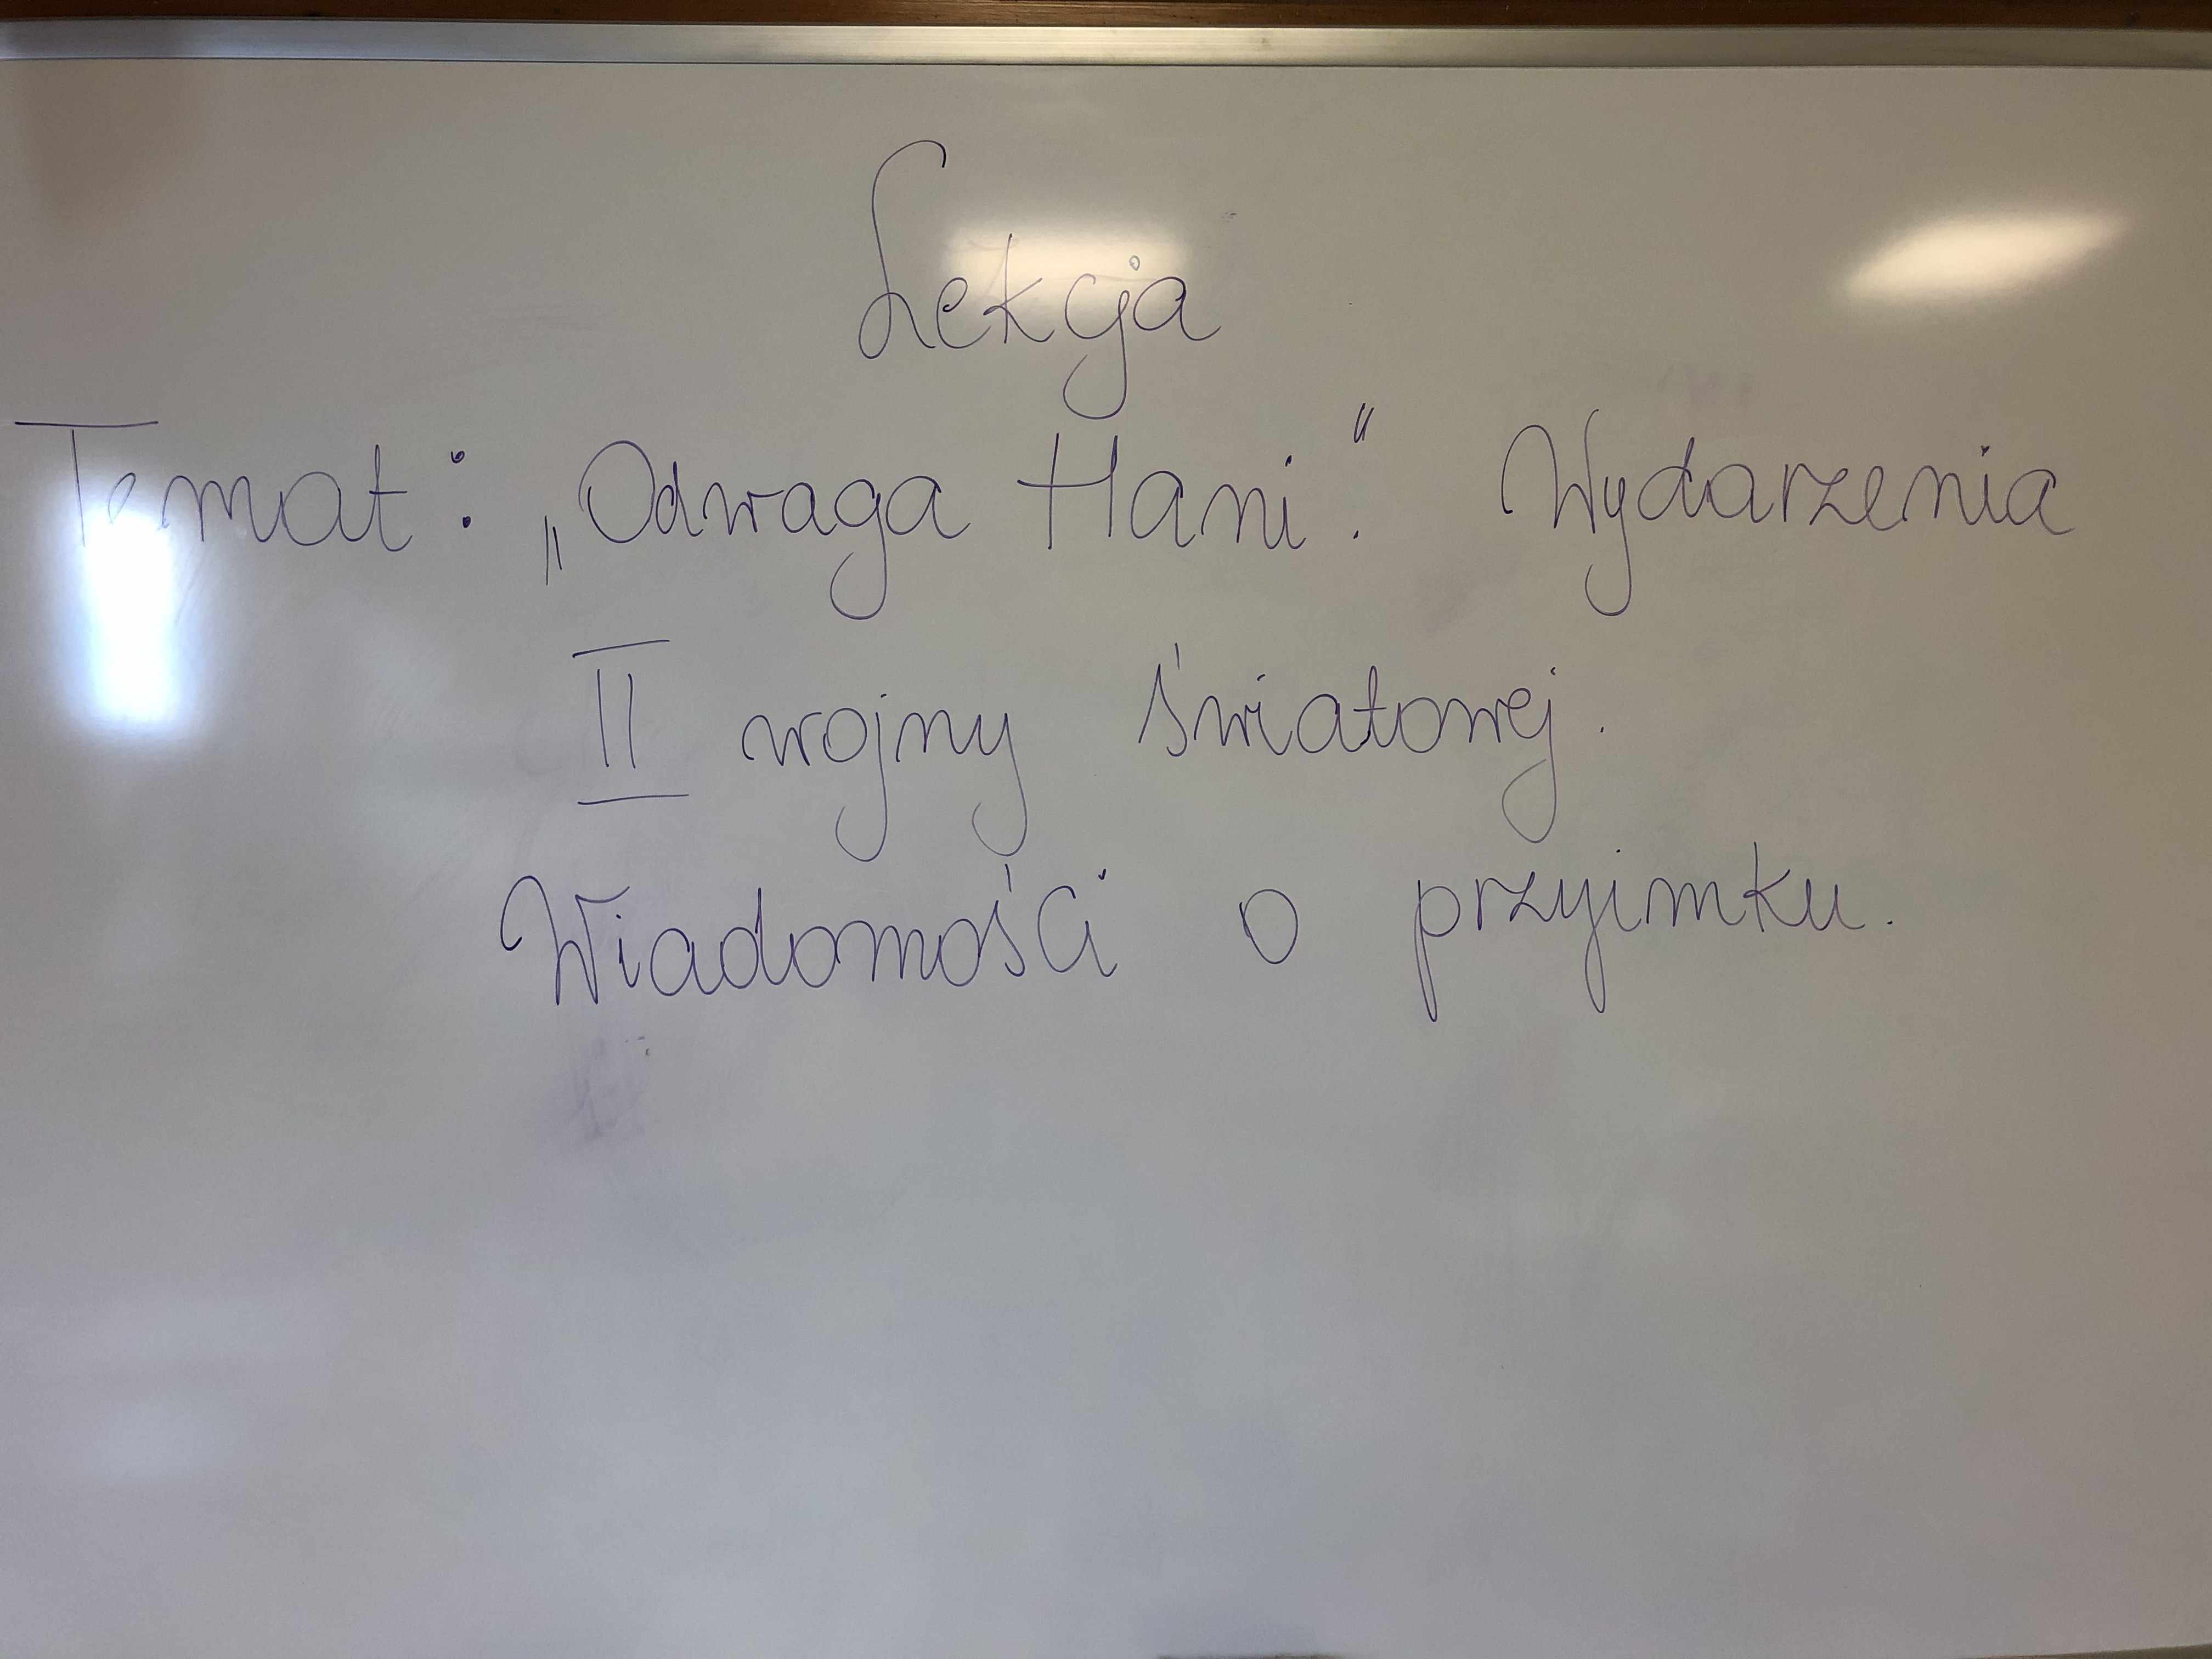 Lekcja
Temat: „Odwaga Hani.“ Wydarzenia
II wojny światowej.
Wiadomości o przyimku.